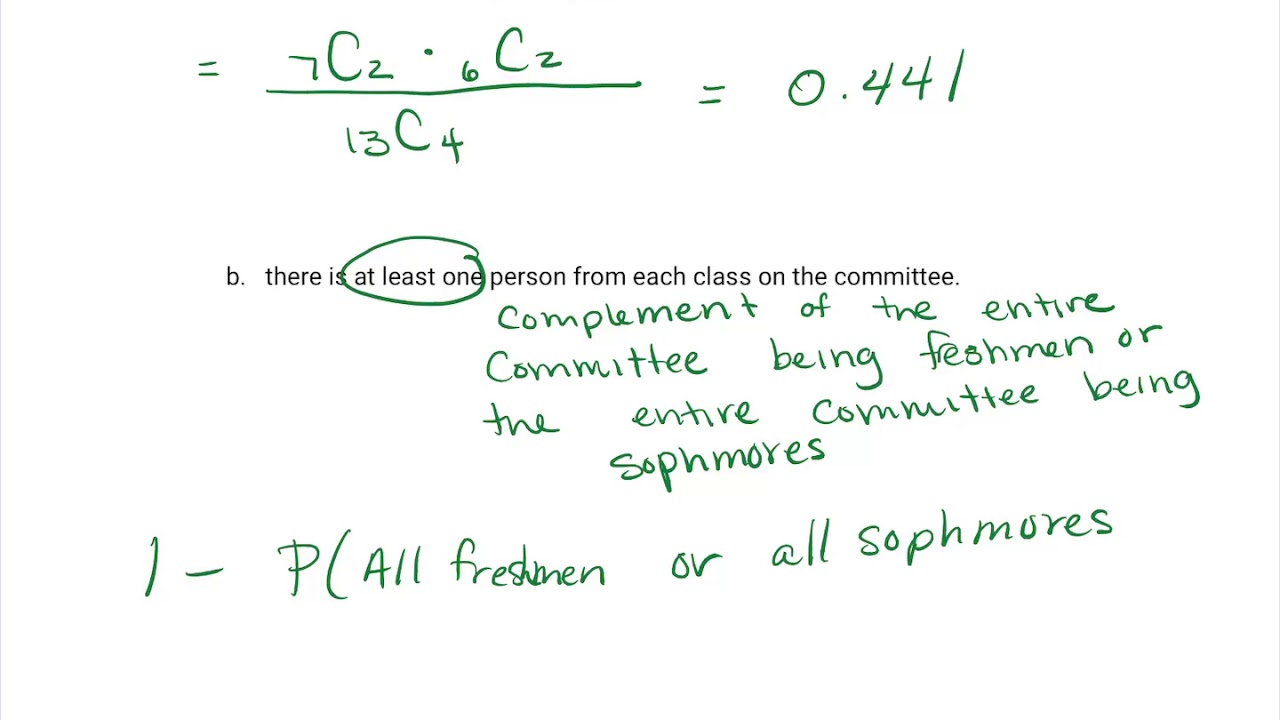 = 7C2 · 6C2 / 13C4 = 0.441
b. there is at least one person from each class on the committee.
complement of the entire
committee being freshmen or
the entire committee being
sophmores
1 - P(All freshmen or all sophmores